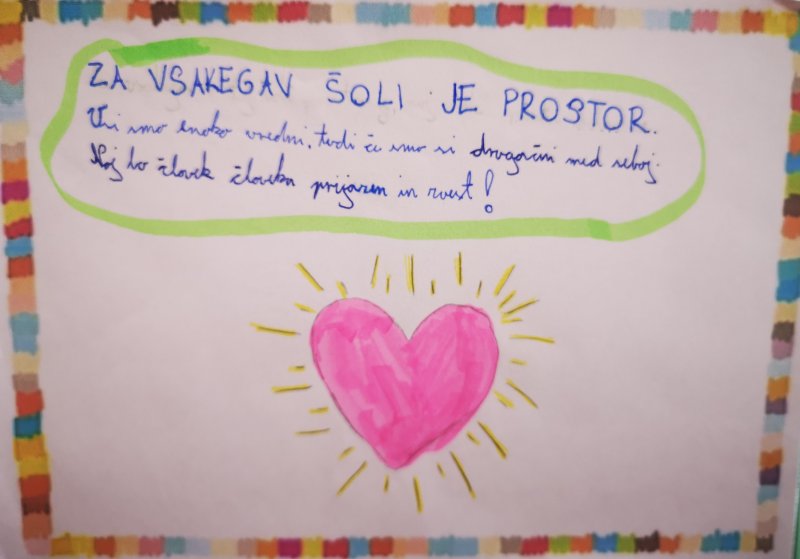 ZA VSAKEGAV ŠOLI JE PROSTOR.
Vsi smo enako vredni, tudi če smo si drugačni med seboj.
Naj bo človek človeku prijazen in zvest!